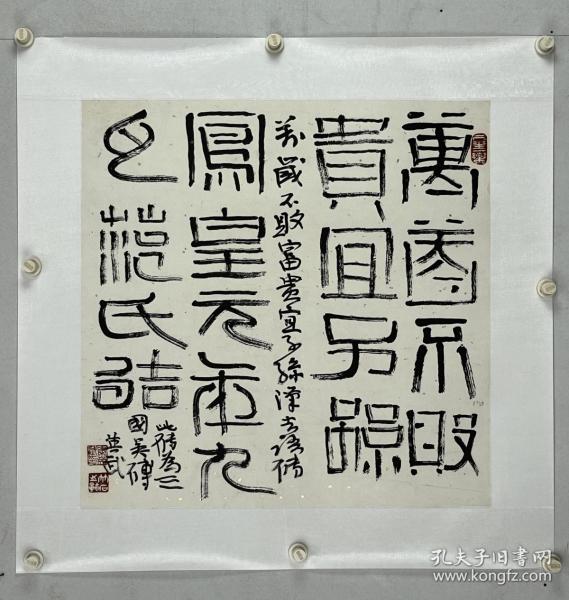 萬歲不敗
貴宜子孫
歲不敗富貴宜子孫漢吉語磚
鳳皇元年九
月范氏
此磚為三
國吳磚
孔夫子旧书网
www.kongfz.com